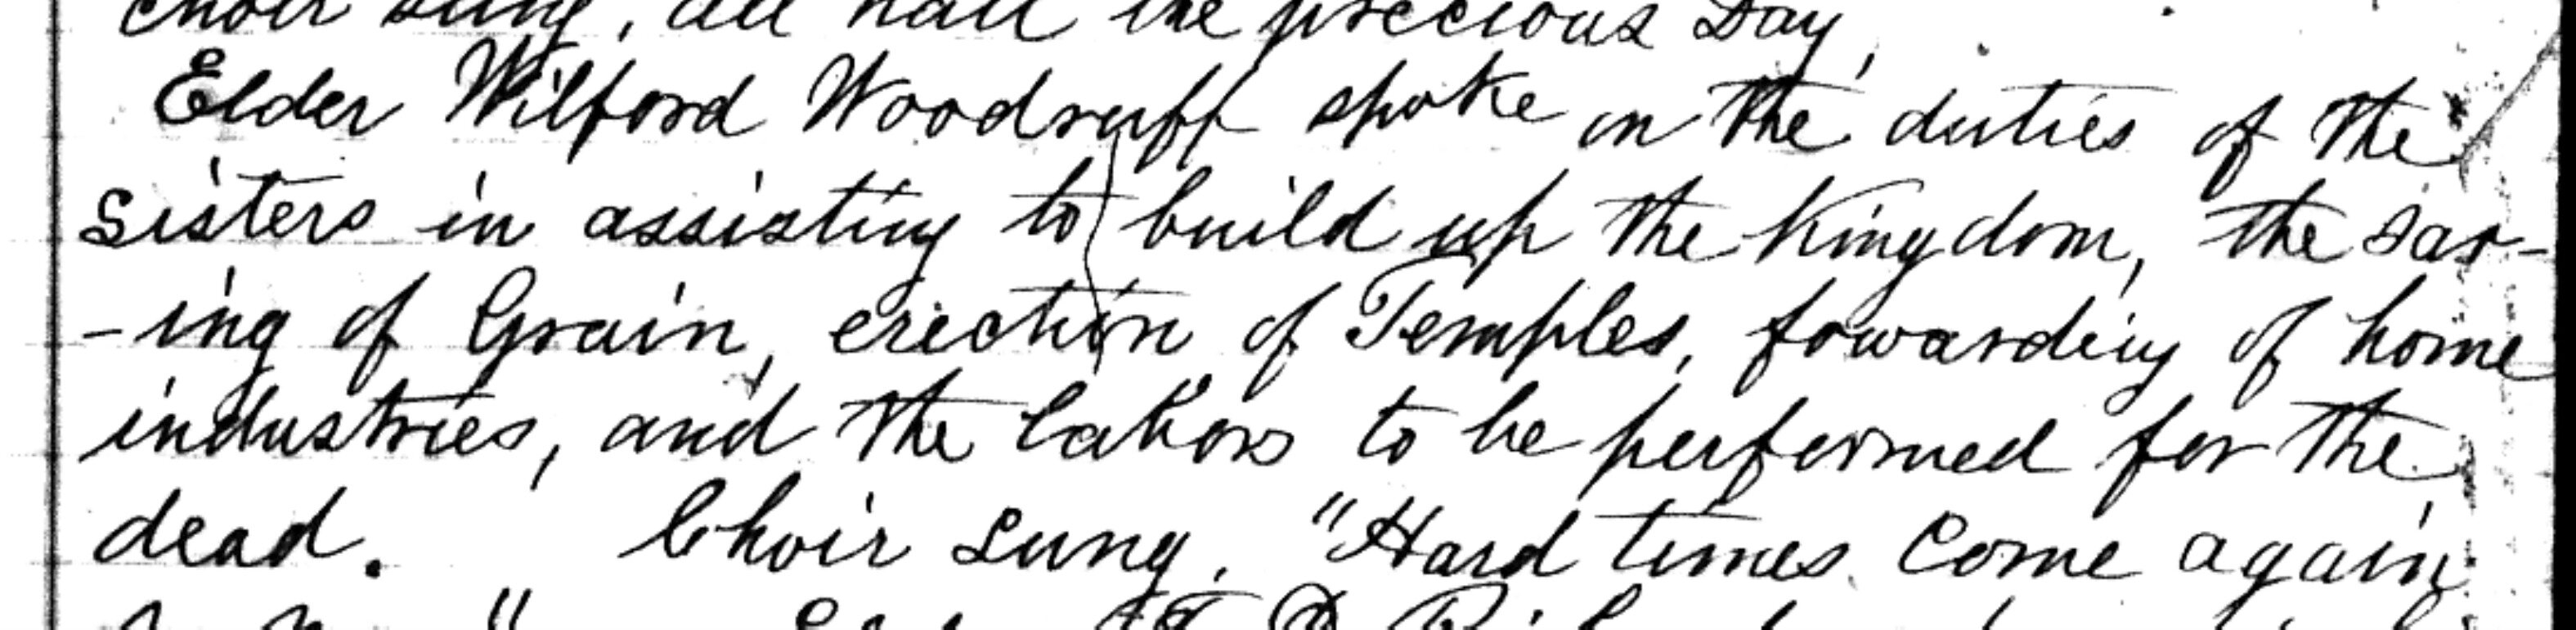 choir sung, all hail the precious Day,
Elder Wilford Woodruff spoke on the duties of the
Sisters in assisting to build up the Kingdom, the sav-
-ing of Grain, erection of Temples, fowarding of home
industries, and the labors to be performed for the
dead. Choir sung. "Hard times come again